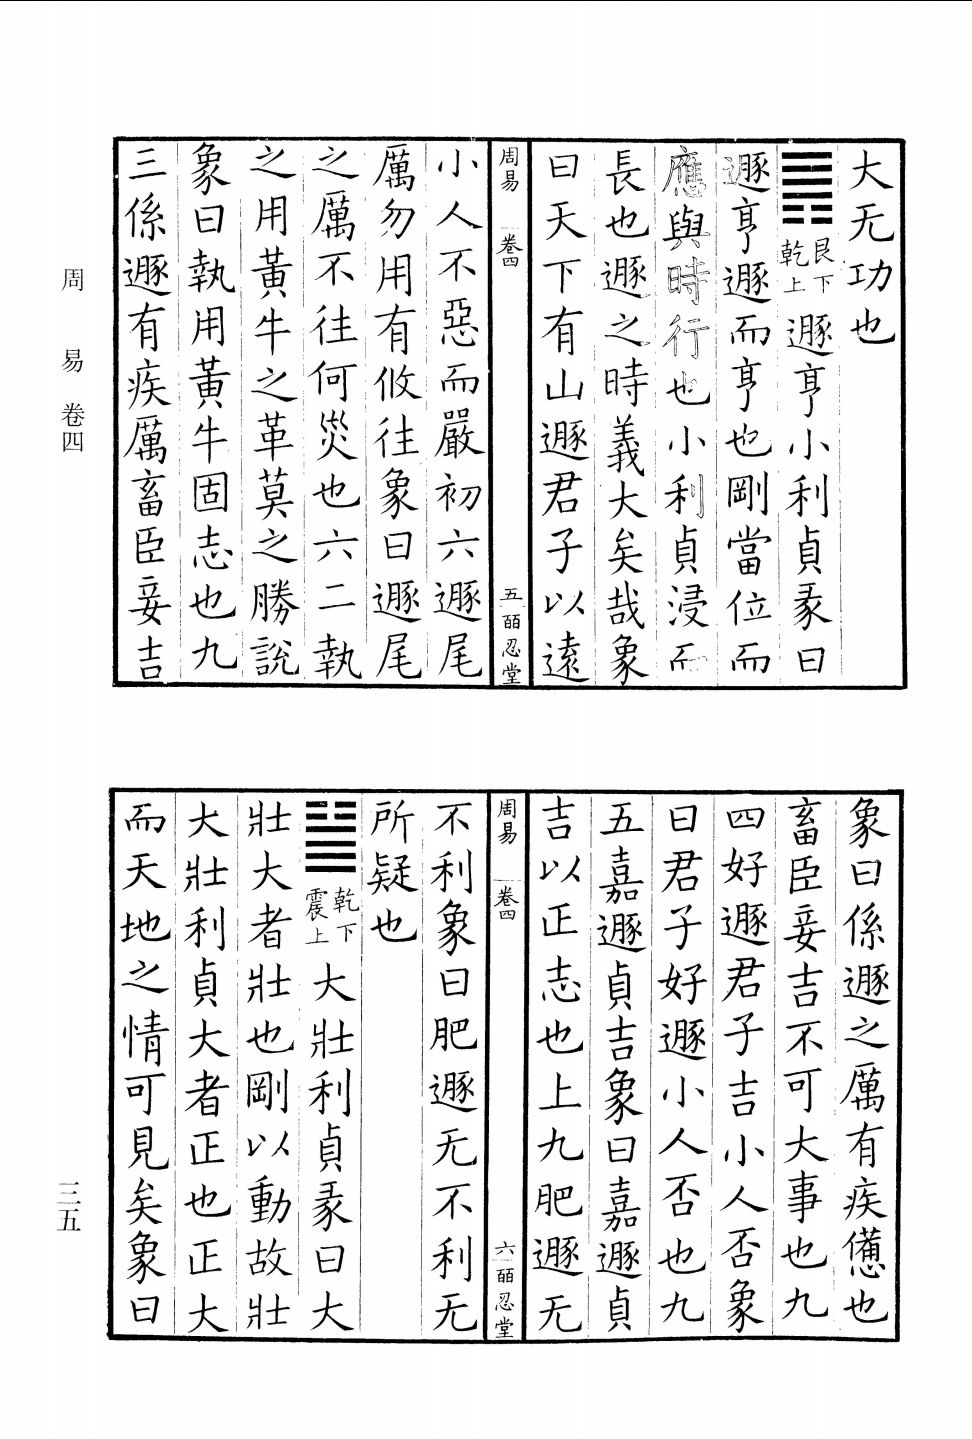 大无功也
䷠艮下乾上遯亨小利貞彖曰
遯亨遯而亨也剛當位而
應與時行也小利貞浸而
長也遯之時義大矣哉象
曰天下有山遯君子以遠
周易 卷四 五 皕忍堂
小人不惡而嚴初六遯尾
厲勿用有攸往象曰遯尾
之厲不往何災也六二執
之用黃牛之革莫之勝說
象曰執用黃牛固志也九
三係遯有疾厲畜臣妾吉
象曰係遯之厲有疾憊也
畜臣妾吉不可大事也九
四好遯君子吉小人否象
曰君子好遯小人否也九
五嘉遯貞吉象曰嘉遯貞
吉以正志也上九肥遯无
周易 卷四 六 皕忍堂
不利象曰肥遯无不利无
所疑也
䷡乾下震上大壯利貞彖曰大
壯大者壯也剛以動故壯
大壯利貞大者正也正大
而天地之情可見矣象曰
周易卷四
三五